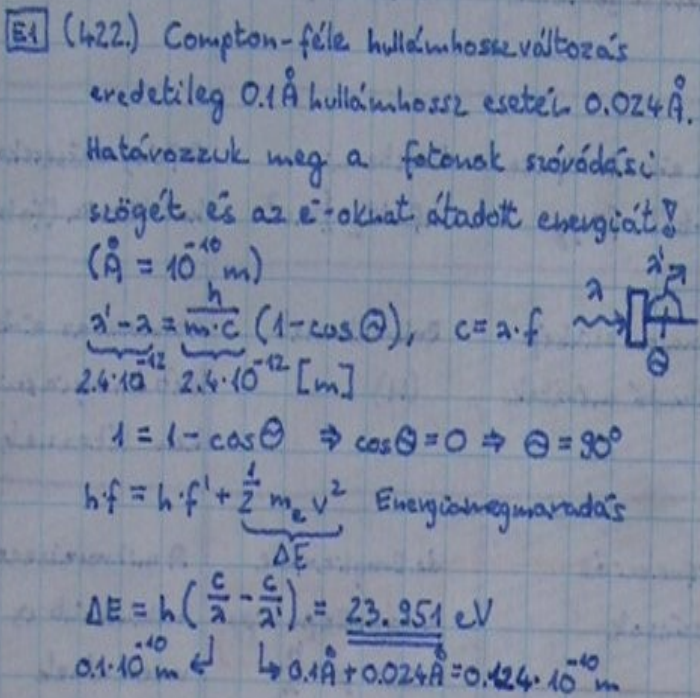 E1 (422.) Compton-féle hullámhosszváltozás
eredetileg 0.1Å hullámhossz esetén 0.024Å.
Határozzuk meg a fotonok szóródási
szögét és az e⁻-oknak átadott energiát!
(Å = 10⁻¹⁰ m)
λ' - λ = h/(m·c) (1-cosΘ), c = λ·f
λ λ' Θ
2.4·10⁻¹² 2.4·10⁻¹² [m]
1 = 1 - cosΘ ⇒ cosΘ = 0 ⇒ Θ = 90°
h·f = h·f' + 1/2 mₑ v² Energiamegmaradás
ΔE
ΔE = h (c/λ - c/λ') = 23.951 eV
0.1·10⁻¹⁰ m ↵ ↳ 0.1Å + 0.024Å = 0.124·10⁻¹⁰ m